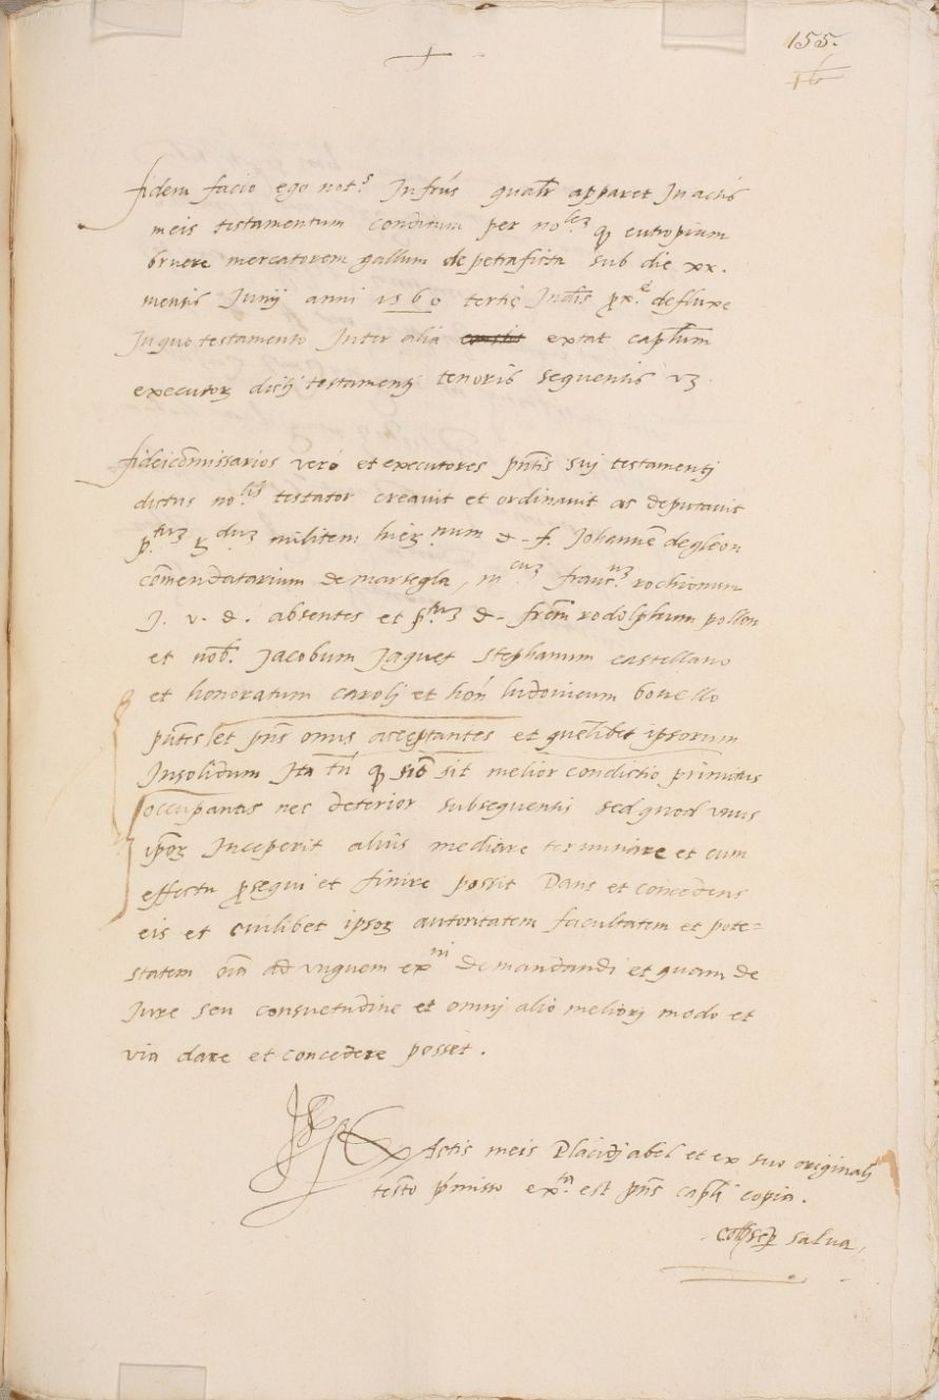 155.
16
fidem facio ego not.s Infrús qualr apparet In actis
meis testamentum conditum per no.lez qȝ eutropium
bruere mercatorem gallum de petraficta sub die xx.
mensis Junij anni 1560 tertię Indis px.ė defluxe
In quo testamento Inter alia extat capłum
executorȝ dictj testamentj tenoris sequentis vȝ.
fideicomissarios veró et executores pntis suj testamentj
dictus no.lis testator creavit et ordinavit ac deputavit
militem d. f. Johannē de gleon
comendatarium de marsegla, rochionum
J. v. d. absentes et d. frem rodolphum pollon
et nob. Jacobum Jaquet Stephanum castellano
et honoratum carolj et hon ludovicum bouello
pntes et pns onus acceptantes et quelibet ipsorum
Insolidum Ita tn qȝ sit melior condictio primitus
occupantis nec deterior subsequentis sed quod unus
ipsoȝ Inceperit alius mediare terminare et cum
effectu psequi et finire possit Dans et concedens
eis et cuilibet ipsoȝ autoritatem facultatem et pote=
statem oia ad unguem ex.ni demandandi et quam de
Jure seu consuetudine et omnj alio meliorj modo et
via dare et concedere posset.
Ex Actis meis Placidj abel et ex suo originalj
testo pmisso ex.ta est pns capli copia.
salva,